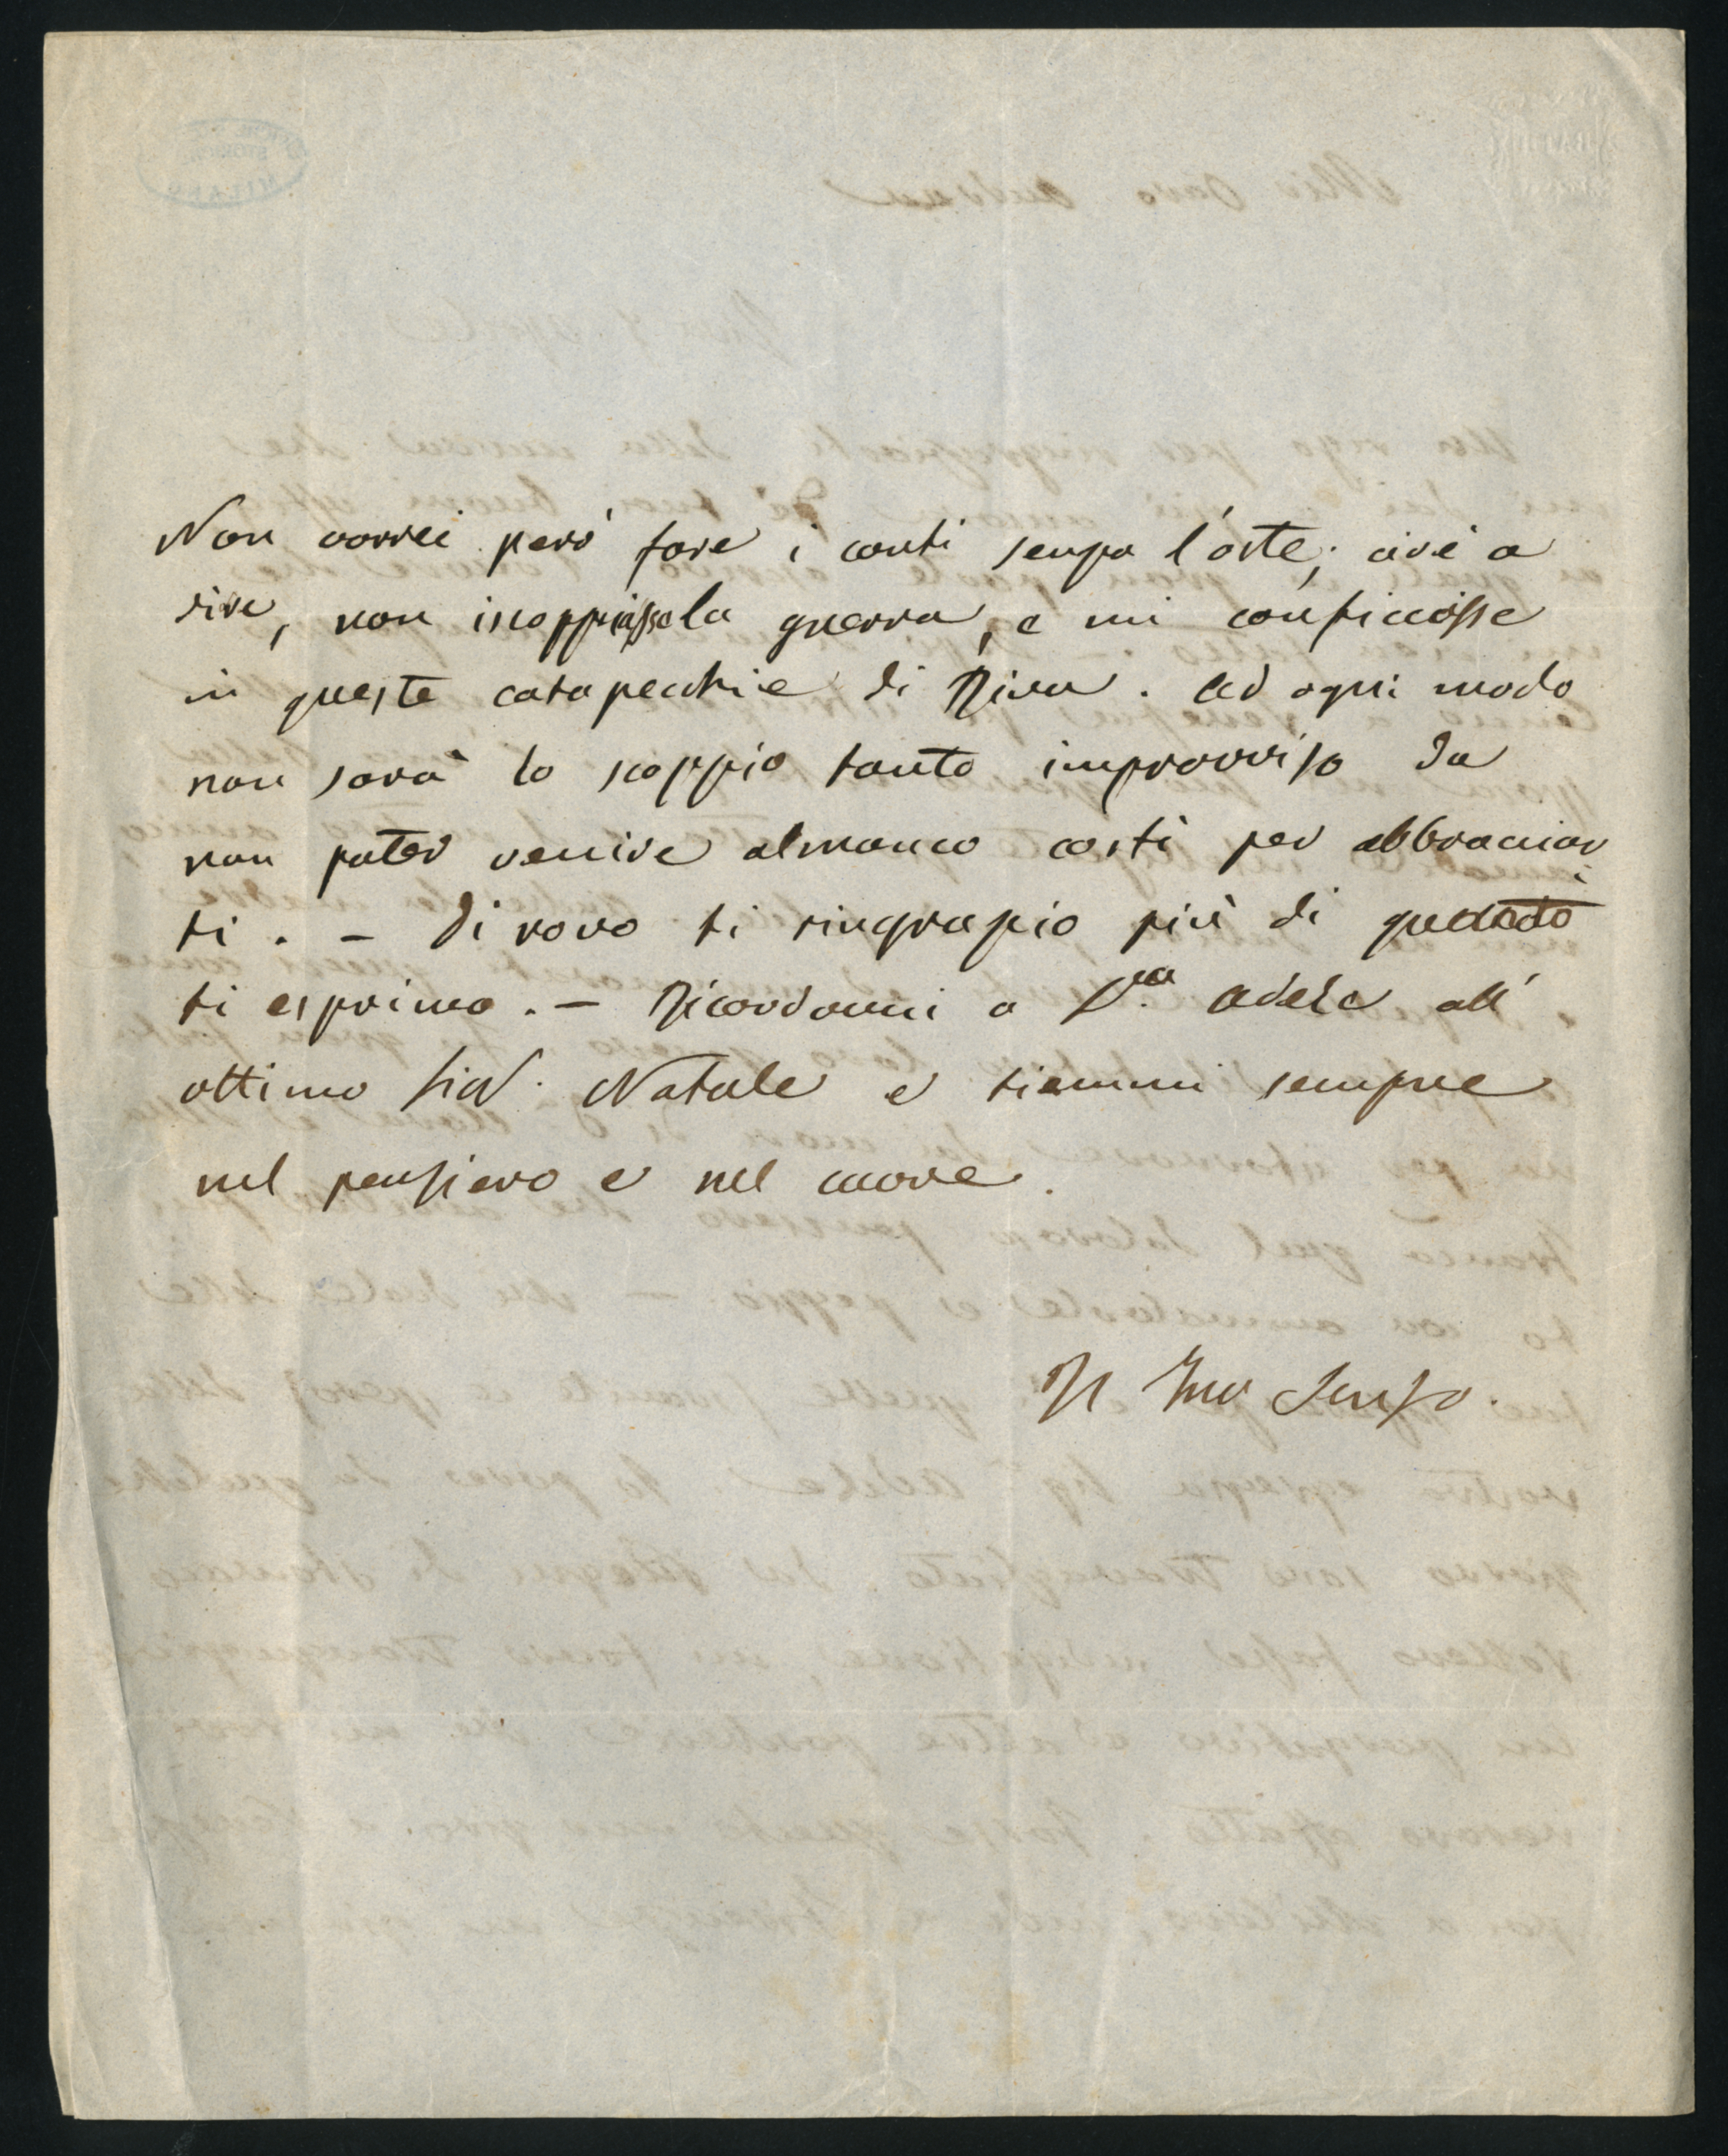 Non vorrei però fare i conti senza l'oste; cioè a
dire, non iscoppiasse la guerra, e mi conficcasse
in queste catapecchie di Riva. Ad ogni modo
non sarà lo scoppio tanto improvviso da
non poter venire almanco costì per abbracciar
ti. – Di novo ti ringrazio più di quanto
ti esprimo. – Ricordami a D.na Adele all'
ottimo Sior. Natale e tiemmi sempre
nel pensiero e nel cuore.
Il Tuo